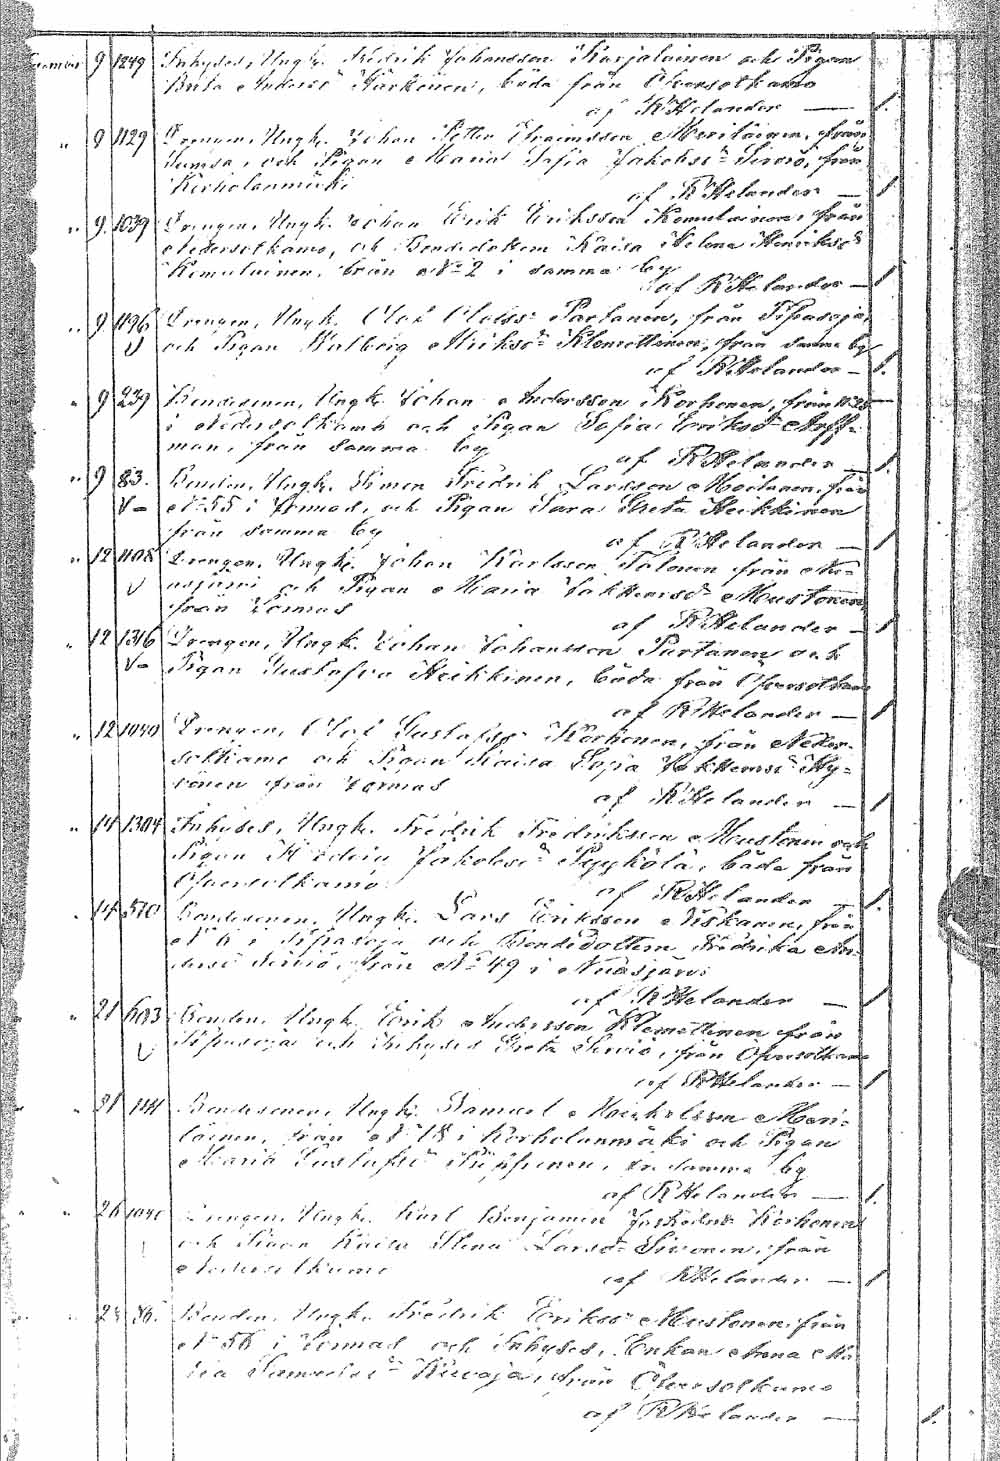 9 1249 Inhyses, Ungk. Fredrik Johansson Karjalainen och Pigan
Brita Andersd:r Härkönen, båda från Öfversotkamo
af R Helander — 1.
" 9 1129 Drengen, Ungk. Johan Petter Efraimsson Meriläinen, från
och Pigan Maria Sofia Jakobsd:r Sirviö, från
Korholanmäki
af R Helander — 1
" 9. 1039 Drengen, Ungk. Johan Erik Eriksson Komulainen, från
Nedersotkamo, och Bondedottern Kaisa Helena Henriksd:r
Kemulainen, från N:o 2 i samma by
af R Helander — 1
" 9 1196 Drengen, Ungk. Olof Olofss: Partanen, från Tipasoja,
och Pigan Walborg Henriksd:r Klemettinen, från samma by
af R Helander — 1.
" 9 239 Bondesonen, Ungk. Johan Andersson Korhonen, från N:o 25
i Nedersotkamo och Pigan Sofia Eriksd:r Arff-
man, från samma by
af R Helander — 1.
" 9 83. Bonden, Ungk. Simon Fredrik Larsson Moilanen, från
V- N:o 55 i Sormas, och Pigan Sara Greta Heikkinen
från samma by
af R Helander — 1
" 12 1108 Drengen, Ungk. Johan Karlsson Tolonen från Nu-
V asjärvi och Pigan Maria Mustonen,
från Sormas
af R Helander — 1
" 12 1316 Drengen, Ungk. Johan Johansson Partanen och
V- Pigan Gustafva Heikkinen, båda från Öfversotkamo
af R Helander — 1
" 12 1040 Drengen, Olof Gustafss: Korhonen, från Neder-
sotkamo och Pigan Kaisa Sofia Hy-
vönen från Sormas
af R Helander — 1
" 14 1304 Inhyses, Ungk. Fredrik Fredriksson Mustonen och
Pigan Hedvig Jakobsd:r Pyykölä, båda från
Öfversotkamo
af R Helander — 1.
" 14 570 Bondesonen, Ungk. Lars Eriksson Niskanen, från
N:o 6 i Tipasoja och Bondedottern Fredrika An-
dersd:r Sirviö, från N:o 49 i Nuasjärvi
af R Helander — 1
" 21 603 Bonden, Ungk. Erik Andersson Klemettinen från
V Tipasoja och Inhyses Greta Sirviö, från Öfversotkamo
af R Helander — 1
" 21 144 Bondesonen, Ungk. Samuel Michelsson Meri-
läinen, från N:o 18 i Korholanmäki och Pigan
Maria Gustafsd:r Piipponen, fr. samma by
af R Helander — 1.
" " 26 1040 Drengen, Ungk. Karl Benjamin Korhonen
och Pigan Kaisa Stina Larsd:r Sivonen, från
Nedersotkamo
af R Helander — 1
28 86. Bonden, Ungk. Fredrik Erikss: Mustonen, från
N:o 56 i Sormas och Inhyses, Enkan Anna Ma-
ria Samuelsd:r Kuvaja, från Öfversotkamo
af R Helander — 1.